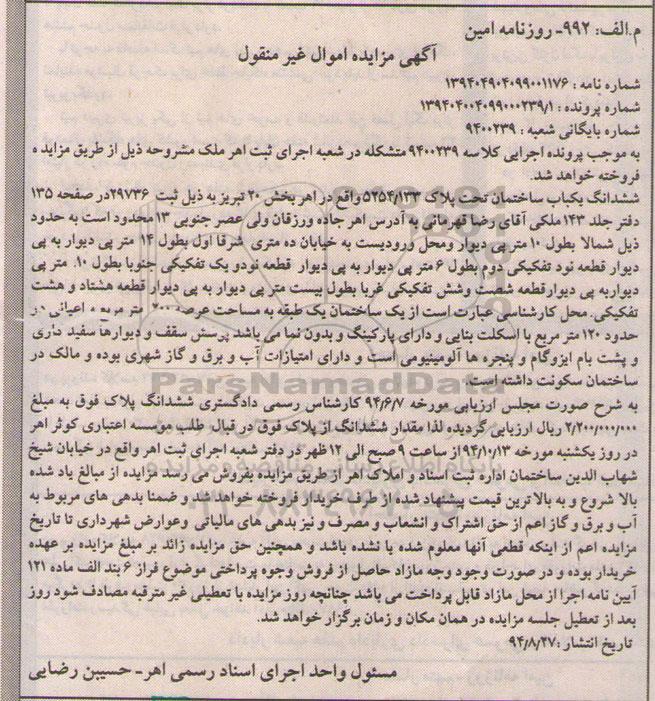 م.الف: ۹۹۲- روزنامه امین
آگهی مزایده اموال غیر منقول
شماره نامه : ۱۳۹۴۰۴۹۰۴۰۹۹۰۰۱۱۷۶
شماره پرونده : ۱۳۹۴۰۴۰۰۴۰۹۹۰۰۰۲۳۹/۱
شماره بایگانی شعبه : ۹۴۰۰۲۳۹
به موجب پرونده اجرایی کلاسه ۹۴۰۰۲۳۹ متشکله در شعبه اجرای ثبت اهر ملک مشروحه ذیل از طریق مزایده
فروخته خواهد شد.
ششدانگ یکباب ساختمان تحت پلاک ۵۲۵۴/۱۳۳ واقع در اهر بخش ۲۰ تبریز به ذیل ثبت ۲۹۷۳۶ در صفحه ۱۳۵
دفتر جلد ۱۴۳ ملکی آقای رضا قهرمانی به آدرس اهر جاده ورزقان ولی عصر جنوبی ۱۳ محدود است به حدود
ذیل شمالا بطول ۱۰ متر پی دیوار ومحل ورودیست به خیابان ده متری شرقا اول بطول ۱۴ متر پی دیوار به پی
دیوار قطعه نود تفکیکی دوم بطول ۶ متر پی دیوار به پی دیوار قطعه نودو یک تفکیکی جنوبا بطول ۱۰ متر پی
دیواربه پی دیوارقطعه شصت وشش تفکیکی غربا بطول بیست متر پی دیوار به پی دیوار قطعه هشتاد و هشت
تفکیکی. محل کارشناسی عبارت است از یک ساختمان یک طبقه به مساحت عرصه ۲۰۰ متر مربع و اعیانی در
حدود ۱۲۰ متر مربع با اسکلت بنایی و دارای پارکینگ و بدون نما می باشد پوشش سقف و دیوارها سفید کاری
و پشت بام ایزوگام و پنجره ها آلومینیومی است و دارای امتیازات آب و برق و گاز شهری بوده و مالک در
ساختمان سکونت داشته است.
به شرح صورت مجلس ارزیابی مورخه ۹۴/۶/۷ کارشناس رسمی دادگستری ششدانگ پلاک فوق به مبلغ
۲/۲۰۰/۰۰۰/۰۰۰ ریال ارزیابی گردیده لذا مقدار ششدانگ از پلاک فوق در قبال طلب موسسه اعتباری کوثر اهر
در روز یکشنبه مورخه ۹۴/۱۰/۱۳ از ساعت ۹ صبح الی ۱۲ ظهر در دفتر شعبه اجرای ثبت اهر واقع در خیابان شیخ
شهاب الدین ساختمان اداره ثبت اسناد و املاک اهر از طریق مزایده بفروش می رسد مزایده از مبالغ یاد شده
بالا شروع و به بالاترین قیمت پیشنهاد شده از طرف خریدار فروخته خواهد شد و ضمنا بدهی های مربوط به
آب و برق و گاز اعم از حق اشتراک و انشعاب و مصرف و نیز بدهی های مالیاتی وعوارض شهرداری تا تاریخ
مزایده اعم از اینکه قطعی آنها معلوم شده یا نشده باشد و همچنین حق مزایده زائد بر مبلغ مزایده بر عهده
خریدار بوده و در صورت وجود وجه مازاد حاصل از فروش وجوه پرداختی موضوع فراز ۶ بند الف ماده ۱۲۱
آیین نامه اجرا از محل مازاد قابل پرداخت می باشد چنانچه روز مزایده با تعطیلی غیر مترقبه مصادف شود روز
بعد از تعطیل جلسه مزایده در همان مکان و زمان برگزار خواهد شد.
تاریخ انتشار :۹۴/۸/۲۷
مسئول واحد اجرای اسناد رسمی اهر- حسین رضایی
ParsNamadData